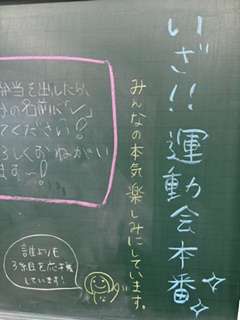 いざ!!運動会本番
みんなの本気楽しみにしています。
弁当を出したら、
の名前に「✓」
てください!
ろしくおねがい
ます〜!
誰よりも
を応援
しています!